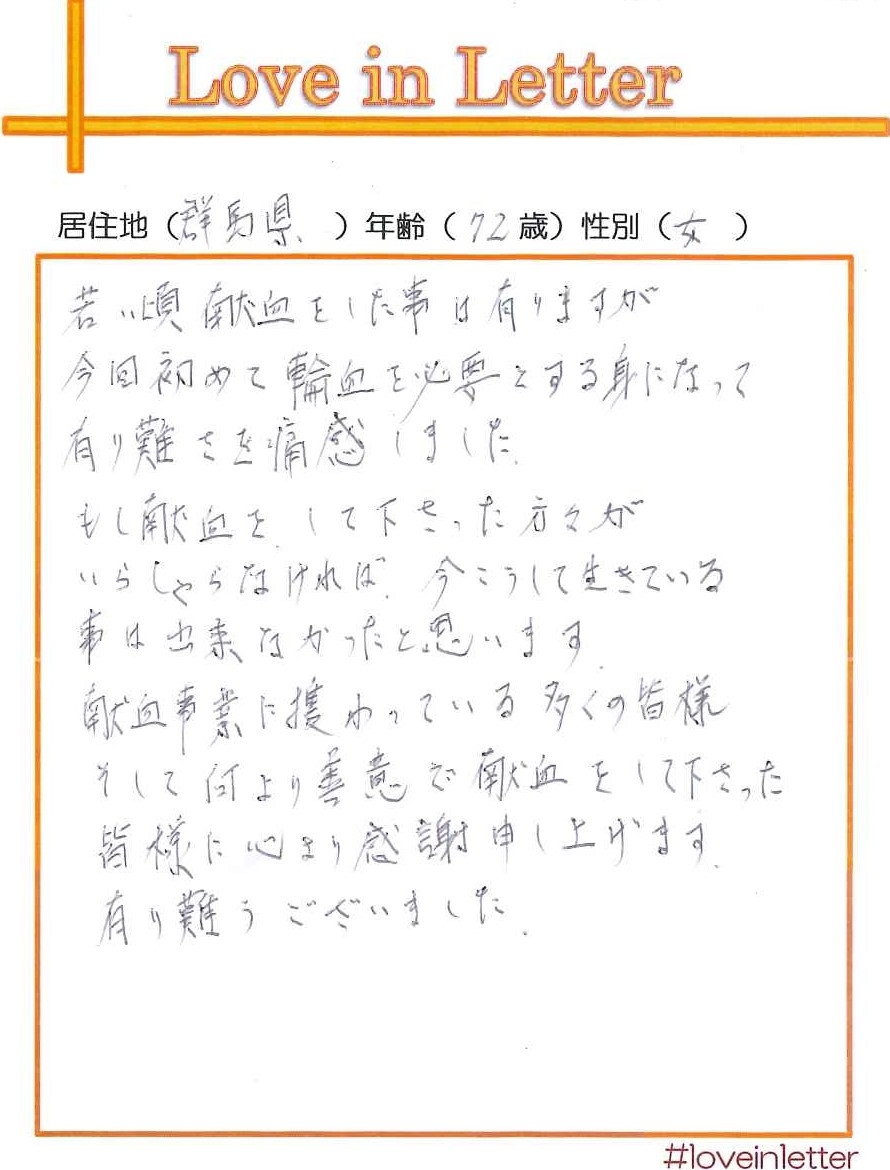 Love in Letter
居住地（群馬県）年齢（72歳）性別（女）
若い頃献血をした事は有りますが
今回初めて輪血を必要とする身になって
有り難さを痛感しました.
もし献血をして下さった方々が
いらしゃらなければ.今こうして生きている
事は出来なかったと思います.
献血事業に携わっている多くの皆様
そして何より善意で献血をして下さった
皆様に心より感謝申し上げます.
有り難うございました.
#loveinletter